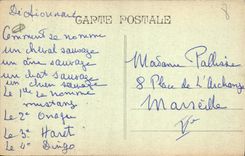 Dictionnaire
CARTE POSTALE
8
Comment se nomme
un cheval sauvage
un âne sauvage
un chat sauvage
un chien sauvage
Le 1er se nomme
mustang
Le 2e Onagre
Le 3e Haret
Le 4e Dingo
Madame
8 Place de l'Archange
Marseille